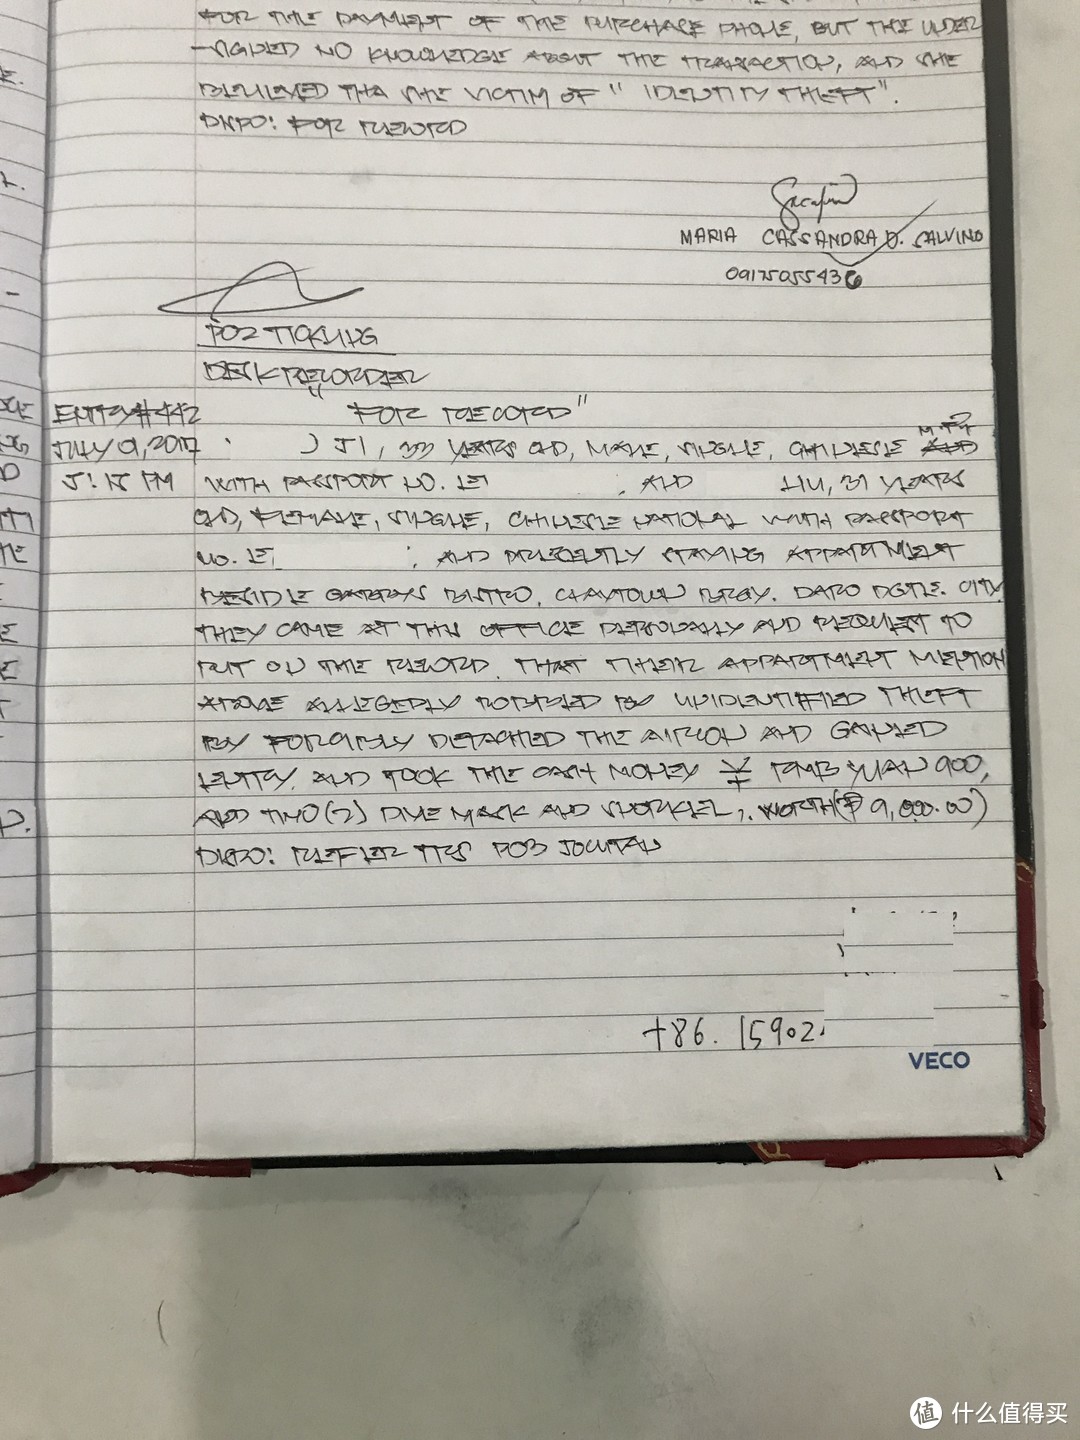 FOR THE PAYMENT OF THE PURCHASE PHONE, BUT THE UNDER
-SIGNED NO KNOWLEDGE ABOUT THE TRANSACTION, AND SHE
BELIEVED THA SHE VICTIM OF " IDENTITY THEFT".
DISPO: FOR RECORD
MARIA CASSANDRA D. SALVINO
09175055436
PO2 TICKLING
DESK RECORDER
ENTRY# 442 "FOR RECORD"
JULY 9, 2017 JI, 33 YEARS OLD, MALE, SINGLE, CHINESE
5:15 PM WITH PASSPORT NO. E1 AND LIU, 31 YEARS
OLD, FEMALE, SINGLE, CHINESE NATIONAL WITH PASSPORT
NO. E1 AND PRESENTLY STAYING APPARTMENT
BESIDE GABBYS BISTRO, CLAYTOWN BRGY. DARO DGTE. CITY
THEY CAME AT THIS OFFICE PERSONALLY AND REQUEST TO
PUT ON THE RECORD. THAT THEIR APPARTMENT MENTION
ABOVE ALLEGEDLY ROBBED BY UNIDENTIFIED THEFT
BY FORCIBLY DETACHED THE AIRCON AND GAINED
ENTRY. AND TOOK THE CASH MONEY ¥ RMB YUAN 900,
AND TWO (2) DIVE MASK AND SNORKEL, WORTH (₱ 9,000.00)
DISPO: REFER TTS PO3 JOUNTAN
+86. 15902
VECO
值 什么值得买